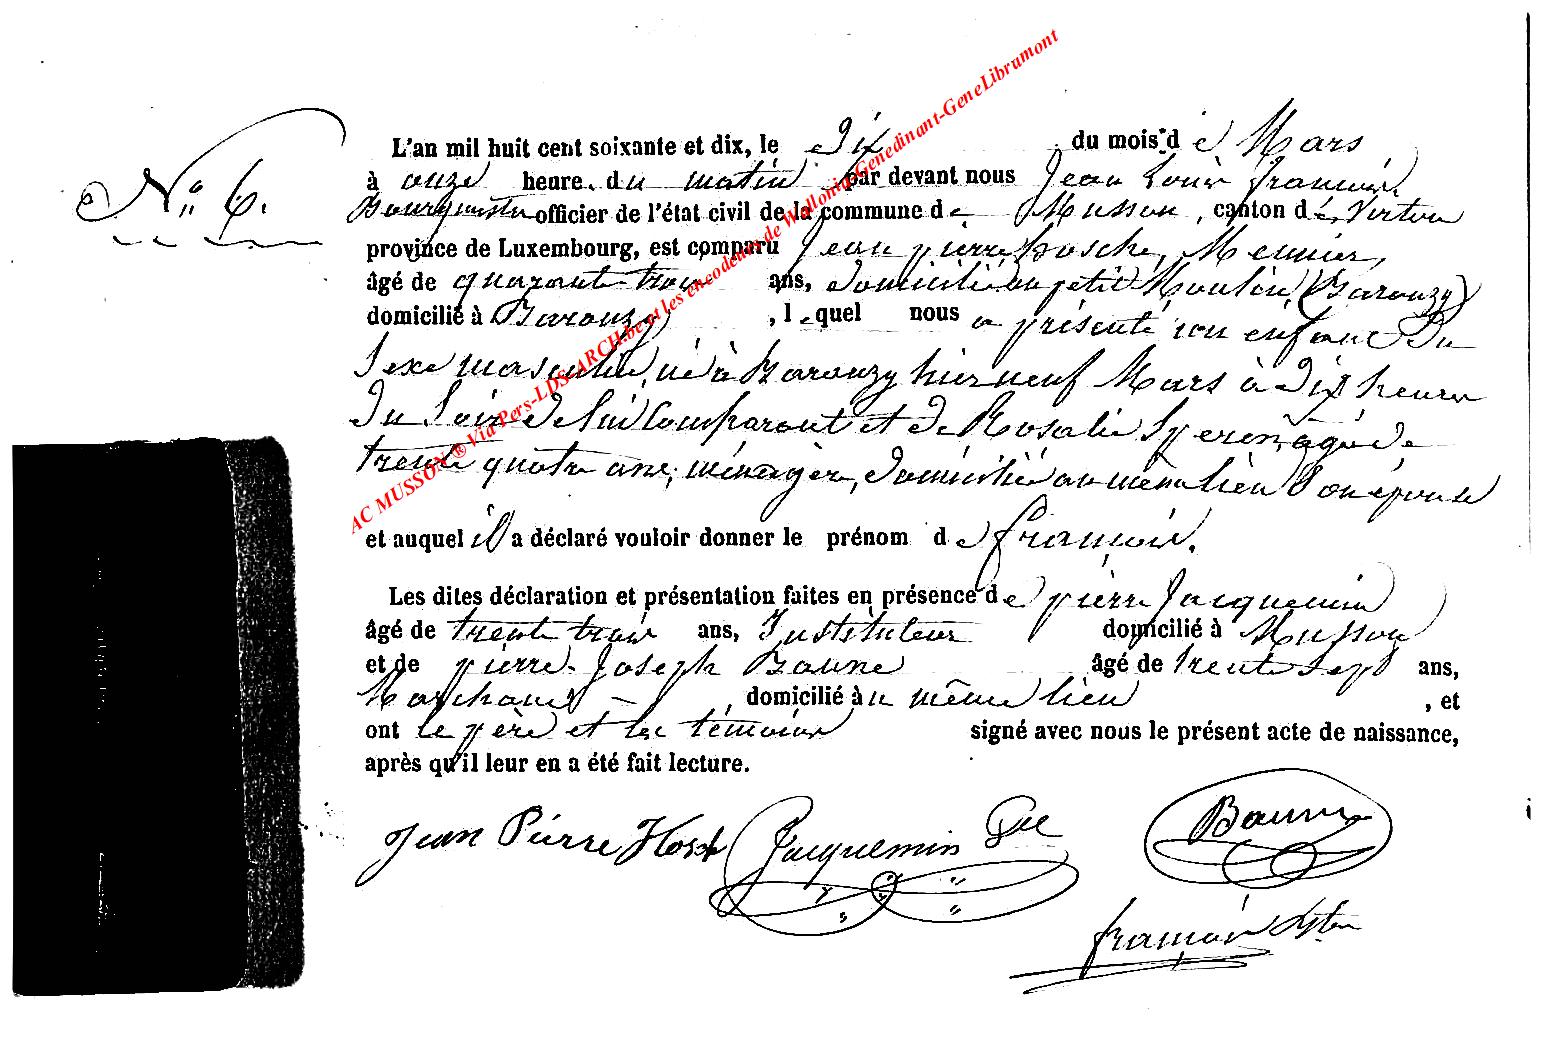 AC MUSSON ® Via Pers-LDS-ARCH.be et les encodeurs de Wallonia-Genedinant-GeneLibramont
N° 6.
L'an mil huit cent soixante et dix, le dix du mois d e Mars
à onze heure. du matin par devant nous Jean Louis françois,
Bourgmestre officier de l'état civil de la commune de Musson, canton de Virton
province de Luxembourg, est comparu Jean pierre hosche, Meunier,
âgé de quarante trois ans, domicilié au petit Moulin (Baranzy)
domicilié à Baranzy, l equel nous a présenté un enfant du
Sexe masculin, né à Baranzy hier neuf Mars à dix heures
du Soir de lui Comparant et de Rosalie agée de
trente quatre ans, ménagère, domiciliée au même lieu Son épouse
et auquel il a déclaré vouloir donner le prénom d e françois.
Les dites déclaration et présentation faites en présence de pierre Jacquemin
âgé de trente trois ans, Instituteur domicilié à Musson
et de pierre-Joseph Baune âgé de trente Sept ans,
Marchand, domicilié au même lieu, et
ont le père et les témoins signé avec nous le présent acte de naissance,
après qu'il leur en a été fait lecture.
Jean Pierre Hosch Jacquemin Pre Baune
françois